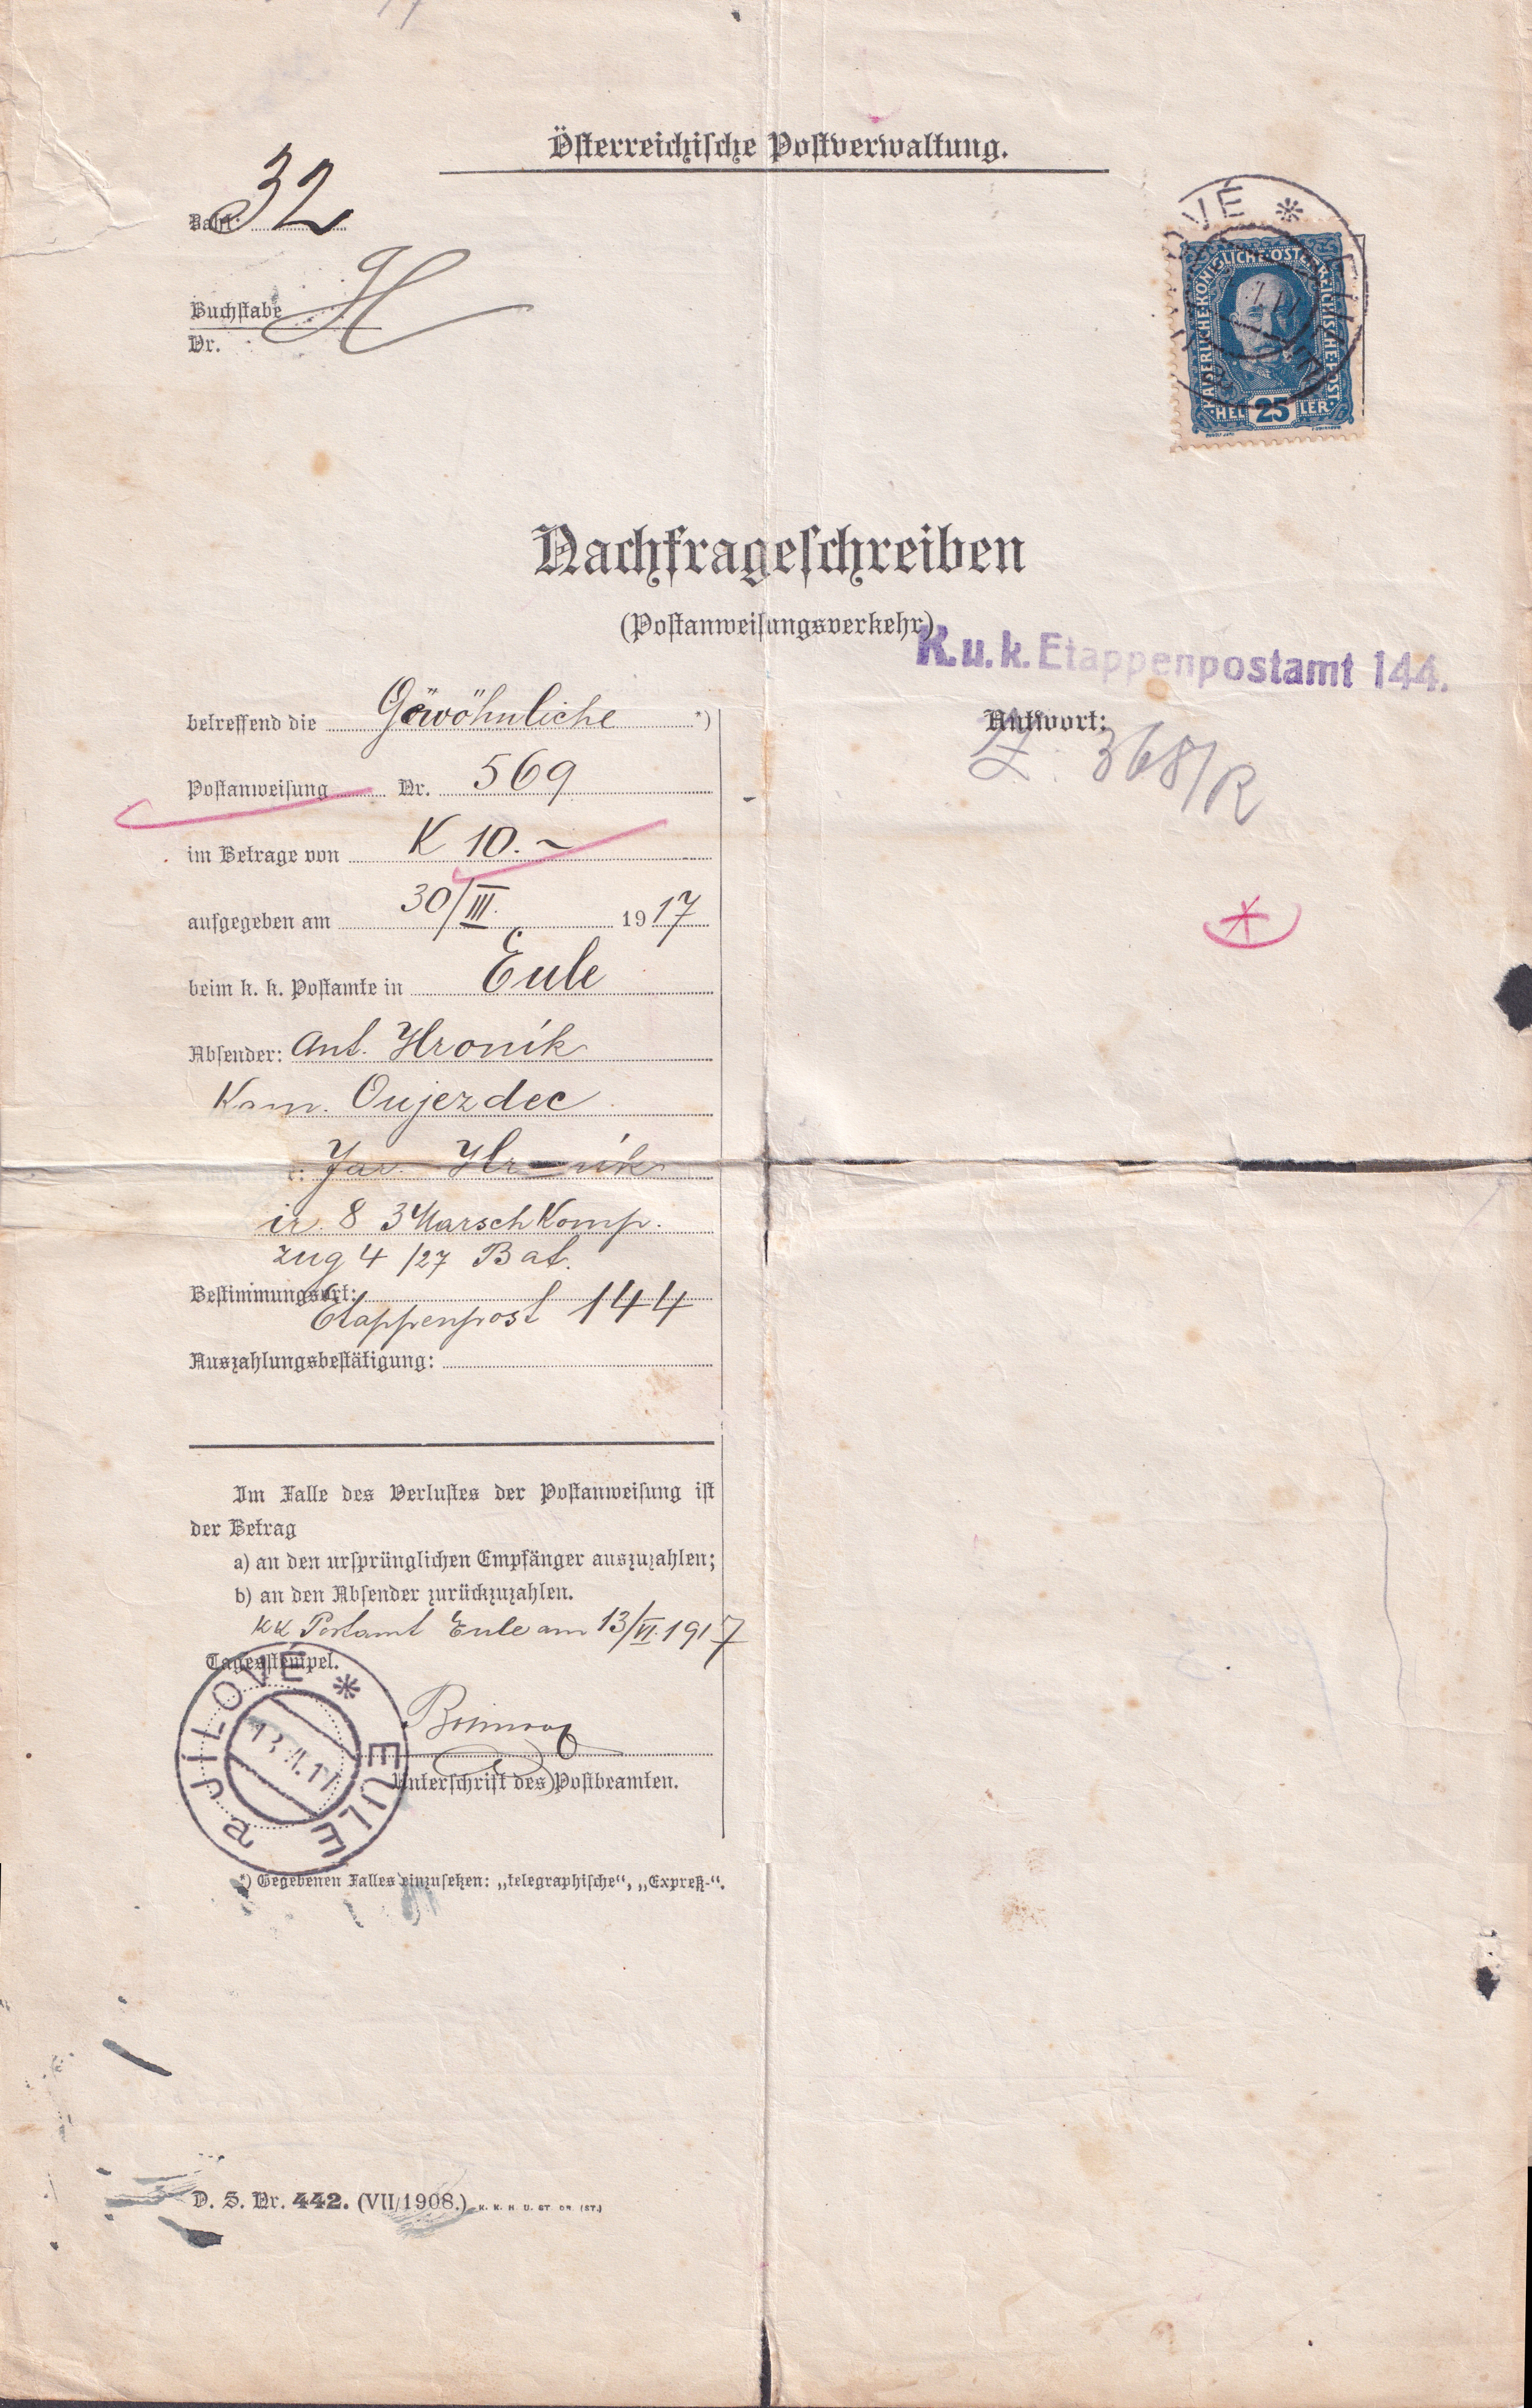 Österreichische Postverwaltung.
Zahl: 32
Buchstabe H
Nr.
JÍLOVÉ * EULE
KAISERLICHE KÖNIGLICHE ÖSTERREICHISCHE POST
HEL 25 LER
Nachfrageschreiben
(Postanweisungsverkehr)
K. u. k. Etappenpostamt 144.
betreffend die Gewöhnliche *)
Antwort:
Z. 368/R
Postanweisung Nr. 569
im Betrage von K 10.–
aufgegeben am 30/III. 1917
beim k. k. Postamte in Eule
Absender: Ant. Hroník
Kam. Oujezdec
Jar. Hroník
ir. 8 3 Marsch Komp.
Zug 4 /27 Bat.
Bestimmungsort:
Etappenpost 144
Auszahlungsbestätigung:
Im Falle des Verlustes der Postanweisung ist
der Betrag
a) an den ursprünglichen Empfänger auszuzahlen;
b) an den Absender zurückzuzahlen.
KK Postamt Eule am 13/VI. 1917
Tagesstempel.
a JÍLOVÉ * EULE
Unterschrift des Postbeamten.
*) Gegebenen Falles einzusetzen: „telegraphische“, „Expreß-“.
D. S. Nr. 442. (VII/1908.) K. K. H. U. ST. DR. (ST.)